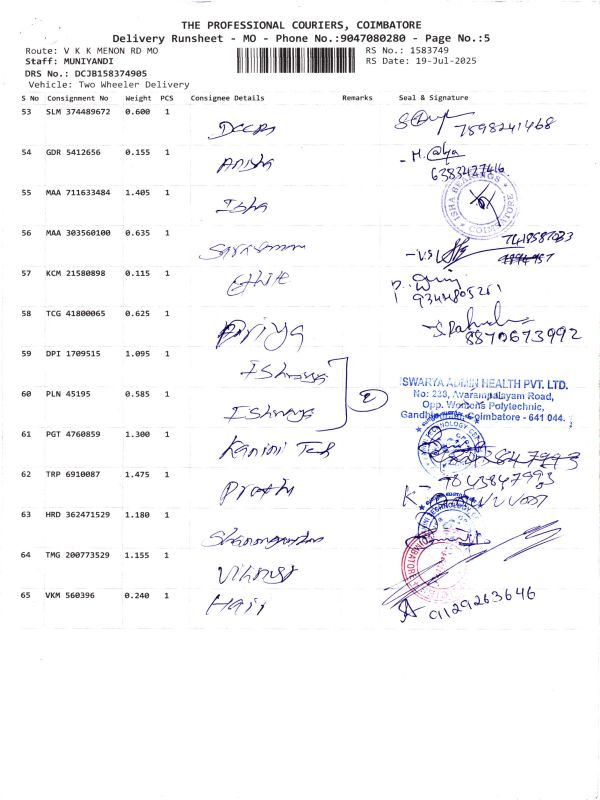 THE PROFESSIONAL COURIERS, COIMBATORE
Delivery Runsheet - MO - Phone No.:9047080280 - Page No.:5
Route: V K K MENON RD MO RS No.: 1583749
Staff: MUNIYANDI RS Date: 19-Jul-2025
DRS No.: DCJB158374905
Vehicle: Two Wheeler Delivery
S No Consignment No Weight PCS Consignee Details Remarks Seal & Signature
53 SLM 374489672 0.600 1 Deepa 7598241468
54 GDR 5412656 0.155 1 Anisha 6383427416
55 MAA 711633484 1.405 1 Isha ISHA BEARINGS COIMBATORE
56 MAA 303560100 0.635 1
57 KCM 21580898 0.115 1 9344805261
58 TCG 41800065 0.625 1 Priya 8870673992
59 DPI 1709515 1.095 1
60 PLN 45195 0.585 1 2
ISWARYA ADMIN HEALTH PVT. LTD.
No: 233, Avarampalayam Road,
Opp. Womens Polytechnic,
Gandhi Coimbatore - 641 044.
61 PGT 4760859 1.300 1 Kanini Tech
62 TRP 6910087 1.475 1 7843847993
63 HRD 362471529 1.180 1
64 TMG 200773529 1.155 1
65 VKM 560396 0.240 1 Hari